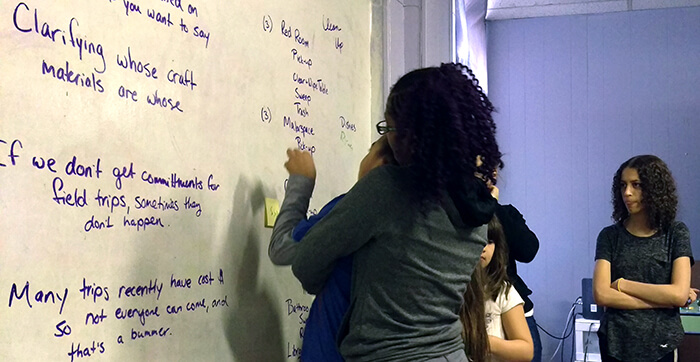 on
you want to say
Clarifying whose craft
materials are whose
If we don't get committments for
field trips, sometimes they
don't happen.
Many trips recently have cost $
so not everyone can come, and
that's a bummer.
(3) Red Room
Pick-up
Clear+Wipe Table
Sweep
Trash
(3) Makerspace
Pick-up
Clean
Up
Dishes